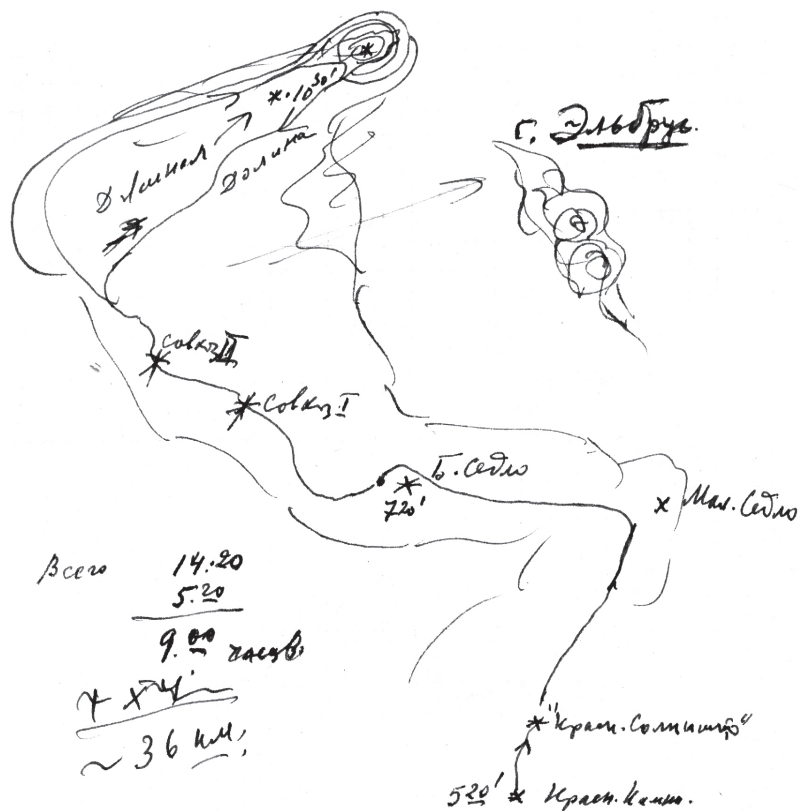 г. Эльбрус.
10 30'
Длинная
долина
совхоз II
совхоз I
Б. Седло
7 20'
Мал. Седло
Всего 14.20
5.20
9.00 часов.
~ 36 км.
"Красн. Солнышко"
5 20' Красн. Камн.